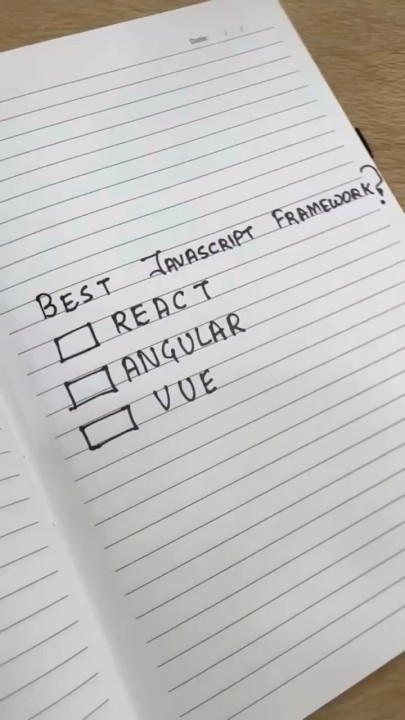 Date: / /
BEST JAVASCRIPT FRAMEWORK?
REACT
ANGULAR
VUE